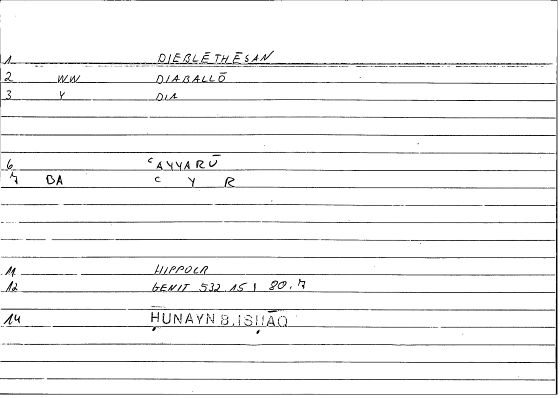 1 DIEBLĒTHĒSAN
2 WW DIABALLŌ
3 Y DIA
6 ʿAYYARŪ
7 BA ʿ Y R
11 HIPPOCR
12 GENIT 532.15 | 80.7
14 ḤUNAYN B. ISḤĀQ